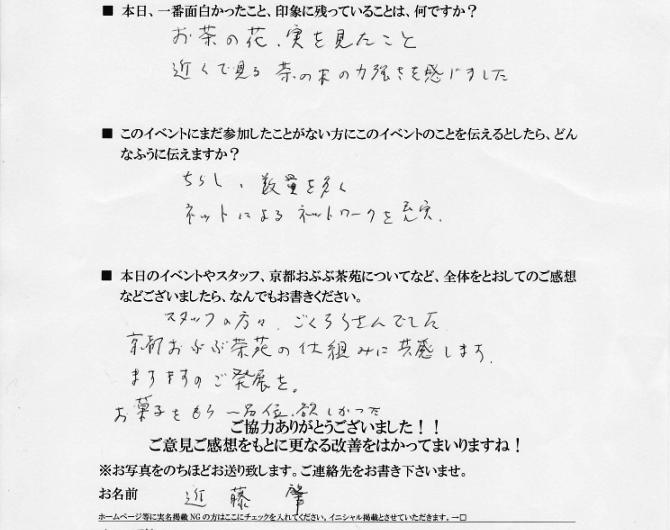 ■ 本日、一番面白かったこと、印象に残っていることは、何ですか？
お茶の花、実を見たこと
近くで見る 茶の木の力強さを感じました
■ このイベントにまだ参加したことがない方にこのイベントのことを伝えるとしたら、どん
なふうに伝えますか？
ちらし、数量を多く
ネットによる ネットワークを充実.
■ 本日のイベントやスタッフ、京都おぶぶ茶苑についてなど、全体をとおしてのご感想
などございましたら、なんでもお書きください。
スタッフの方々、ごくろうさんでした
京都おぶぶ茶苑の仕組みに共感します.
ますますのご発展を。
お菓子をもう 一品位、欲しかった
ご協力ありがとうございました！！
ご意見ご感想をもとに更なる改善をはかってまいりますね！
※お写真をのちほどお送り致します。ご連絡先をお書き下さいませ。
お名前 近藤 肇
ホームページ等に実名掲載NGの方はここにチェックを入れてください。イニシャル掲載とさせていただきます。→□